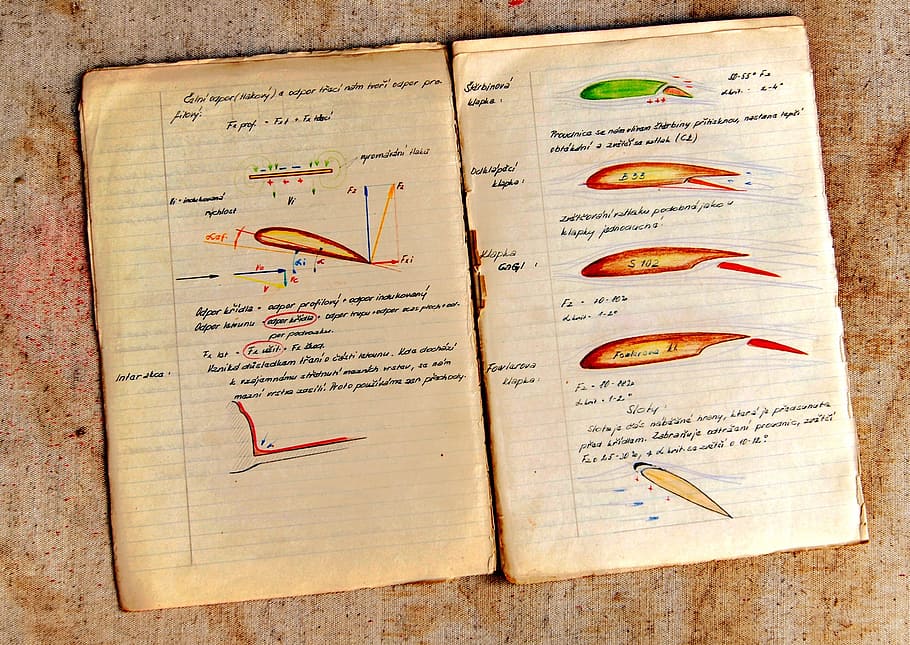 Čelní odpor (tlakový) a odpor třecí nám tvoří odpor pro-
filový:
Fx prof. = Fxt + Fx třecí
vyrovnávání tlaků
Vi = indukovaná
rychlost
Vi
Fz
Fz
αi
α
Fxi
Vo
V
Odpor křídla = odpor profilový + odpor indukovaný
Odpor letounu = odpor křídla + odpor trupu + odpor ocas. ploch + od-
por podvozku.
Fx let = Fx užit. + Fx škod.
Interakce:
Vzniká důsledkem tření o části letounu. Kde dochází
k vzájemnému střetnutí mezních vrstev, se nám
mezní vrstva zesílí. Proto používáme zen přechody.
Štěrbinová
klapka:
50-55° Fz
α krit. = 2-4°
Proudnice se nám vlivem štěrbiny přitisknou, nastane lepší
obtékání a zvětší se vztlak (CL)
Odklápěcí
klapka:
B 33
zvětšování vztlaku podobná jako u
klapky jednoduché.
Klapka
S 102
α krit = 1-2°
Fowlerova
klapka:
Fowlerova kl.
α krit = 1-2°
Sloty:
Slot je část náběžné hrany, která je předsunuta
před křídlem. Zabraňuje odtržení proudnic, zvětší
Fz o 25-30%, + α krit. se zvětší o 10-12°